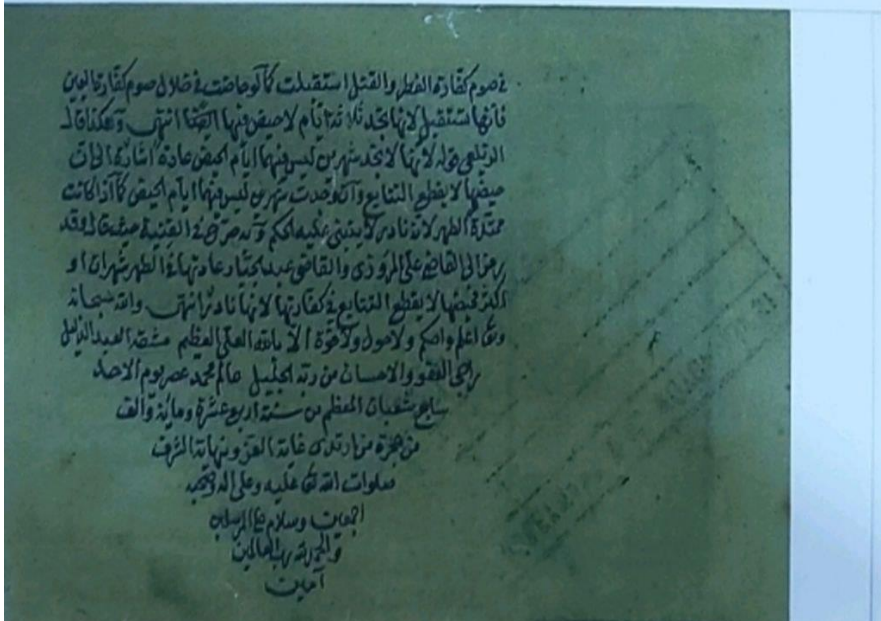 في صوم كفارة الفطر والقتل استقبلت كما لو حاضت في خلال صوم كفارة اليمين
فانها تستقبل لانها تجد ثلاثة ايام لا حيض فيها انتهى وهكذا قال
الزيلعي قوله لانها لا تجد شهرين ليس فيهما ايام الحيض عادة اشارة الى ان
حيضها لا يقطع التتابع وان وجدت شهرين ليس فيهما ايام الحيض كما اذا كانت
ممتدة الطهر لانه نادر لا يبتنى عليه الحكم وبه صرح في القنية حيث قال وقد
رمز الى القاضي علي المروزي والقاضي عبد الجبار عادتها في الطهر شهران او
اكثر فحيضها لا يقطع التتابع في كفارتها لانها نادر انتهى والله سبحانه
وتعا اعلم واحكم ولا حول ولا قوة الا بالله العلي العظيم مشقه العبد الذليل
راجي العفو والاحسان من ربه الجليل عالم محمد عصر يوم الاحد
سابع شعبان المعظم من سنة اربع عشرة وماية والف
من هجرة من ارتدى غاية العز ونهاية الشرف
صلوات الله تعا عليه وعلى اله وصحبه
اجمعين وسلام على المرسلين
والحمد لله رب العالمين
آمين